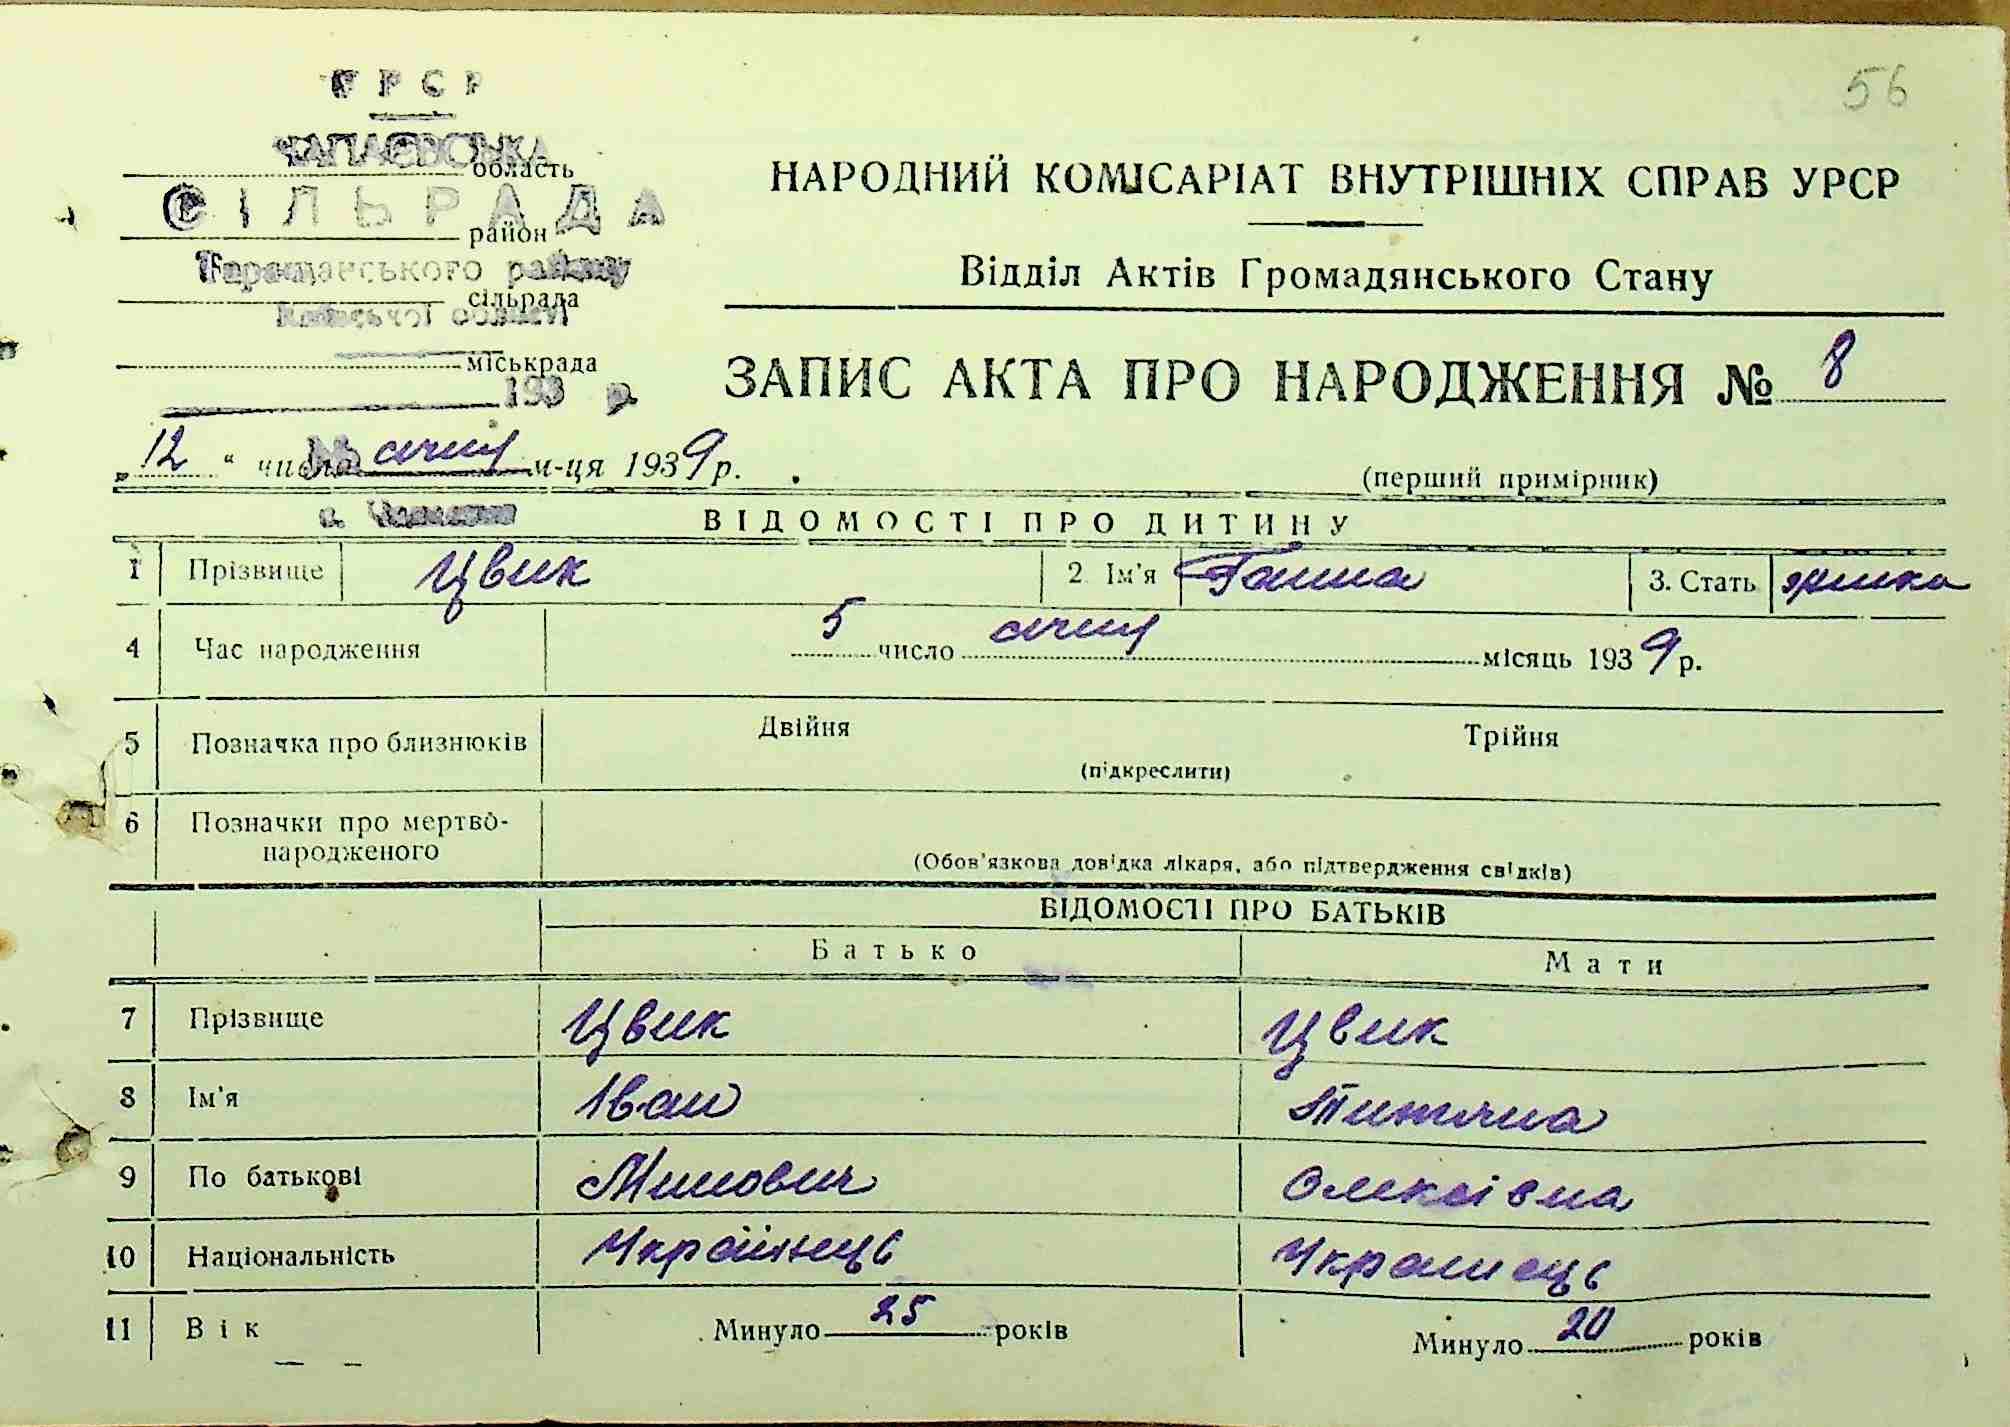 56
УРСР
ЧАПАЄВСЬКА
область
СІЛЬРАДА
район
Таращанського району
сільрада
Київської області
міськрада
193 р.
НАРОДНИЙ КОМІСАРІАТ ВНУТРІШНІХ СПРАВ УРСР
Відділ Актів Громадянського Стану
ЗАПИС АКТА ПРО НАРОДЖЕННЯ № 8
„12“ числа січня м-ця 1939 р.
(перший примірник)
ВІДОМОСТІ ПРО ДИТИНУ
1 Прізвище Цвик 2. Ім'я Ганна 3. Стать жіноча
4 Час народження 5 число січня місяць 1939 р.
5 Позначка про близнюків Двійня Трійня
(підкреслити)
6 Позначки про мертво-
народженого
(Обов'язкова довідка лікаря, або підтвердження свідків)
ВІДОМОСТІ ПРО БАТЬКІВ
Батько Мати
7 Прізвище Цвик Цвик
8 Ім'я Іван Титяна
9 По батькові Минович Олексівна
10 Національність Українець Украінець
11 Вік Минуло 25 років Минуло 20 років